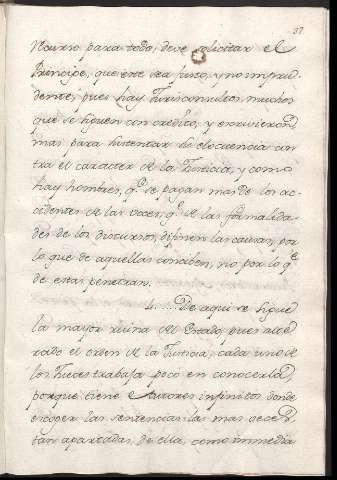 37
Recurso para todo, deve solicitar el
Principe, que este sea justo, y no impru-
dente, pues hay Jurisconsultos, muchos
que se siguen con credito, y escrivieron
mas para sustentar su eloquencia con
tra el caracter de la Justicia, y como
hay hombres, q.e se pagan mas de los ac-
cidentes de las voces, q.e de las formalida-
des de los discursos, difinen las causas, por
lo que de aquellas conciben, no por lo q.e
de estas penetran.
4. De aqui se sigue
la mayor ruina del Estado, pues alte
rado el orden de la Justicia, cada uno de
los Jueces trabaja poco en conocerla,
porque tiene Autores infinitos donde
escoger las sentencias las mas veces
tan apartadas de ella, como immedia